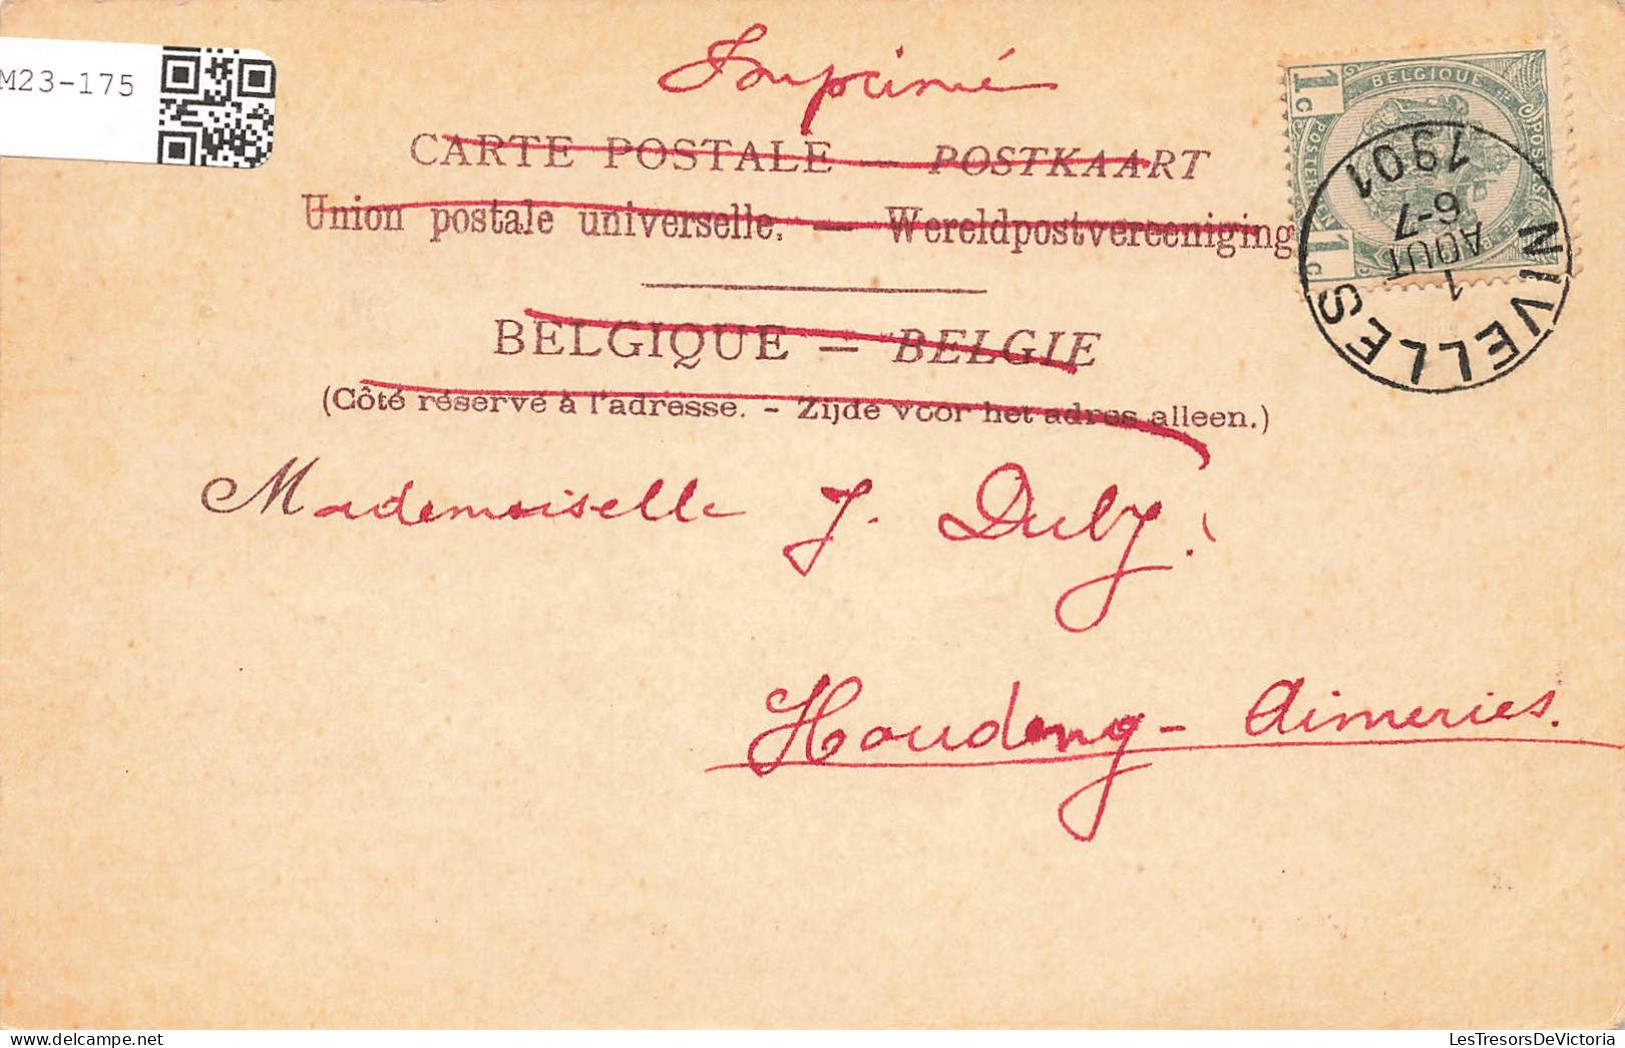 M23-175
Imprimé
CARTE POSTALE — POSTKAART
Union postale universelle. — Wereldpostvereeniging
BELGIQUE — BELGIE
(Côté réservé à l'adresse. - Zijde voor het adres alleen.)
1c BELGIQUE 1c
NIVELLES
1
AOUT
6-7
1901
Mademoiselle J. Duby.
Houdeng-Aimeries.
LesTresorsDeVictoria